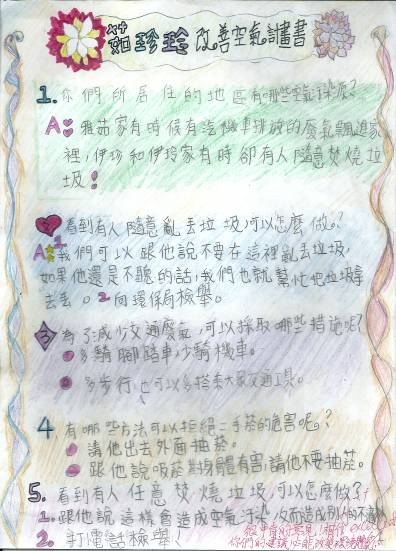 茹珍玲改善空氣計畫書
1. 你們所居住的地區有哪些空氣汙染源?
A 雅茹家有時候有汽機車排放的廢氣飄進家
裡,伊珍和伊玲家有時卻有人隨意焚燒垃
圾!
2 看到有人隨意亂丟垃圾,可以怎麼做?
A 1 我們可以跟他說不要在這裡亂丟垃圾,
如果他還是不聽的話,我們也就幫忙他垃圾拿
去丟。2 向環保局檢舉。
3 為了減少交通廢氣,可以採取哪些措施呢?
多騎腳踏車少騎機車。
多步行,也可以多搭乘大眾交通工具。
4 有哪些方法可以拒絕二手菸的危害呢?
請他出去外面抽菸。
跟他說吸菸對身體有害,請他不要抽菸。
5. 看到有人任意焚燒垃圾,可以怎麼做?
1. 跟他說這樣會造成空氣汙染,
2. 打電話檢舉!
你們的建議必能改變